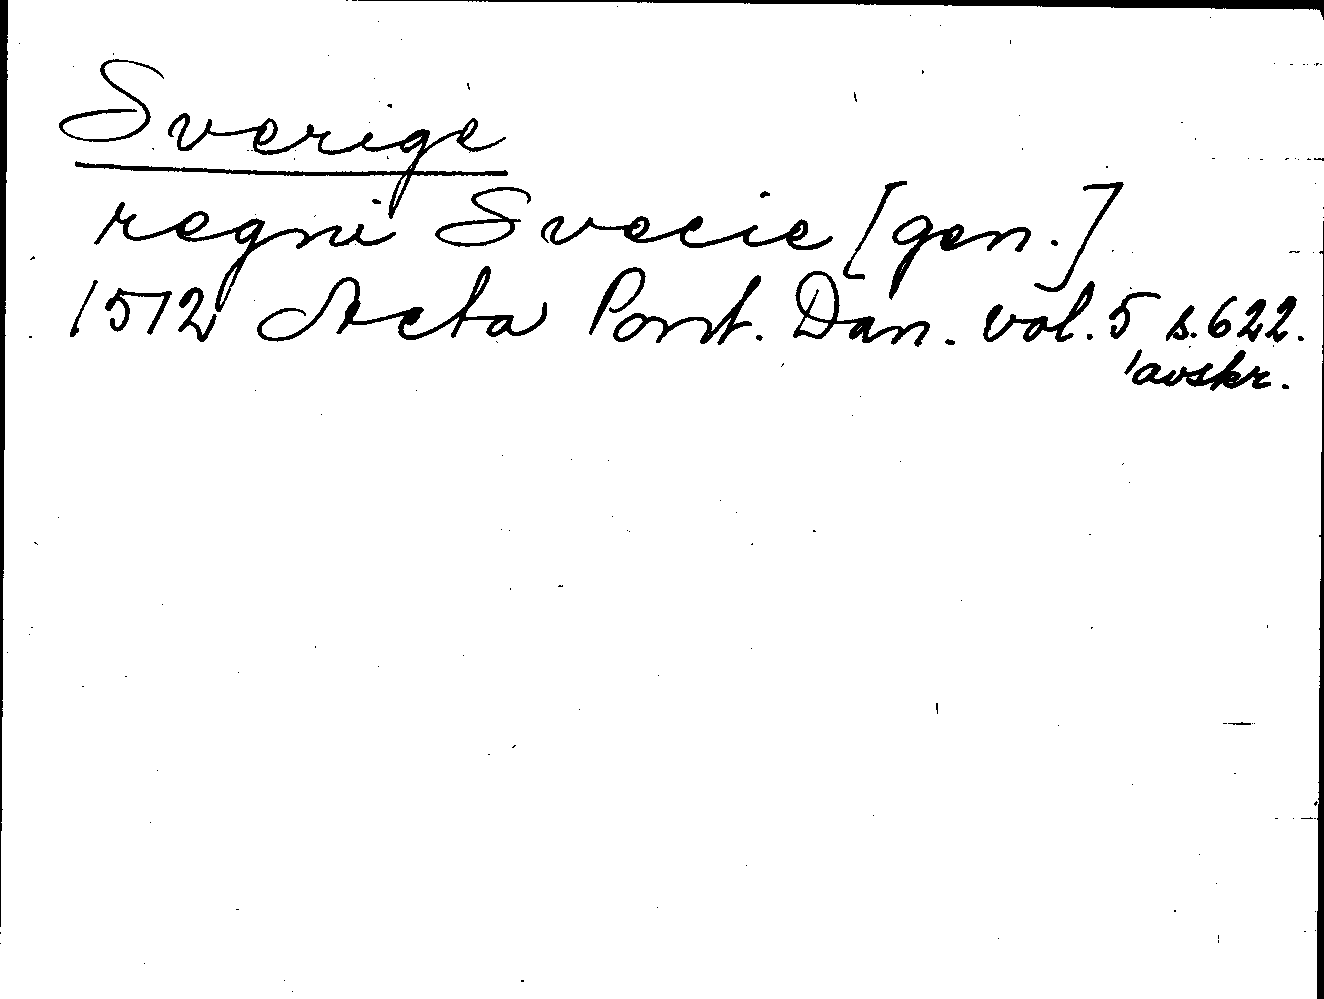 Sverige
regni Svecie [gen.]
1512 Acta Pont. Dan. vol. 5 s. 622.
avskr.